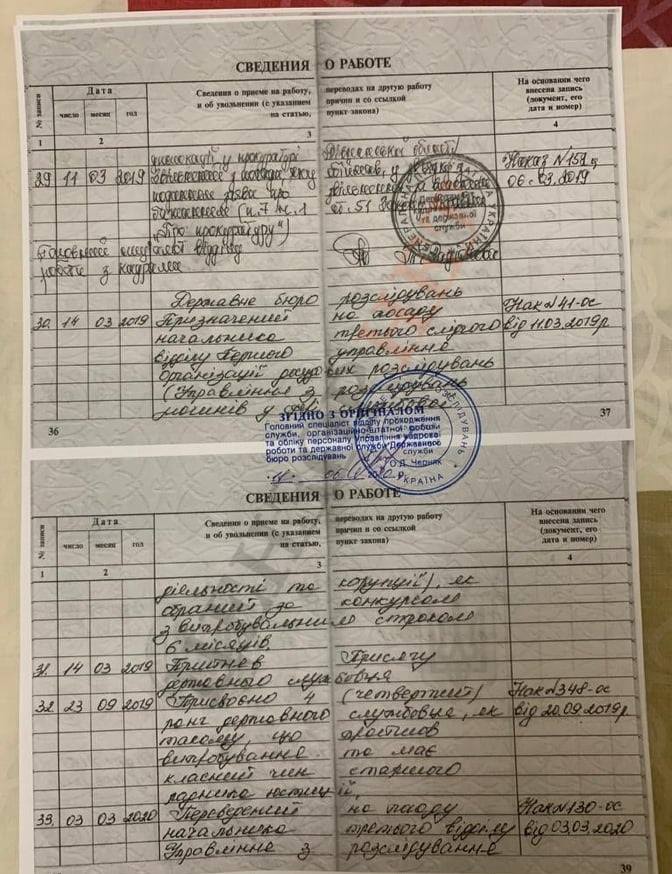 СВЕДЕНИЯ О РАБОТЕ
№ записи
Дата
число месяц год
Сведения о приеме на работу, переводах на другую работу
и об увольнении (с указанием причин и со ссылкой
на статью, пункт закона)
На основании чего
внесена запись
(документ, его
дата и номер)
1 2 3 4
прокуратурі області
29 11 03 2019 Наказ №
06.03.2019
права про
(п.7 ч.1 ст. 51
"Про прокуратуру")
відділу
роботи з кадрами
Державне бюро розслідувань
30. 14 03 2019 Призначений на посаду Нак №41-ос
начальника третього слідчого від 11.03.2019р
відділу Першого управління
організації досудових розслідувань
(Управління з розслідувань
злочинів у службової
36 37
ЗГІДНО З ОРИГІНАЛОМ
Головний спеціаліст відділу проходження
служби, організаційно-штатної роботи
та обліку персоналу Управління кадрової
роботи та державної служби Державного
бюро розслідувань
О.Д. Черняк
УКРАЇНА
СВЕДЕНИЯ О РАБОТЕ
№ записи
Дата
число месяц год
Сведения о приеме на работу, переводах на другую работу
и об увольнении (с указанием причин и со ссылкой
на статью, пункт закона)
На основании чего
внесена запись
(документ, его
дата и номер)
1 2 3 4
діяльності та корупції), як
обраний за конкурсом
з випробувальним строком
6 місяців.
31. 14 03 2019 Прийняв Присягу
державного службовця
32. 23 09 2019 Присвоєно 4 (четвертий) Нак №348-ос
ранг державного службовця, як від 20.09.2019р
такому, що пройшов
випробування та має
класний чин старшого
радника юстиції.
33. 03 03 2020 Переведений на посаду Нак №130-ос
начальника третього відділу від 03.03.2020
Управління з розслідування
39